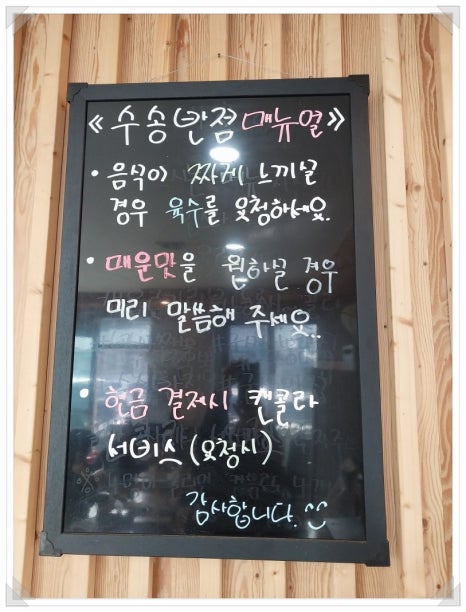 《수송반점 매뉴얼》
• 음식이 짜게 느끼실
경우 육수를 요청하세요.
• 매운맛을 원하실 경우
미리 말씀해 주세요..
• 현금 결제시 캔콜라
서비스 (요청시)
감사합니다.